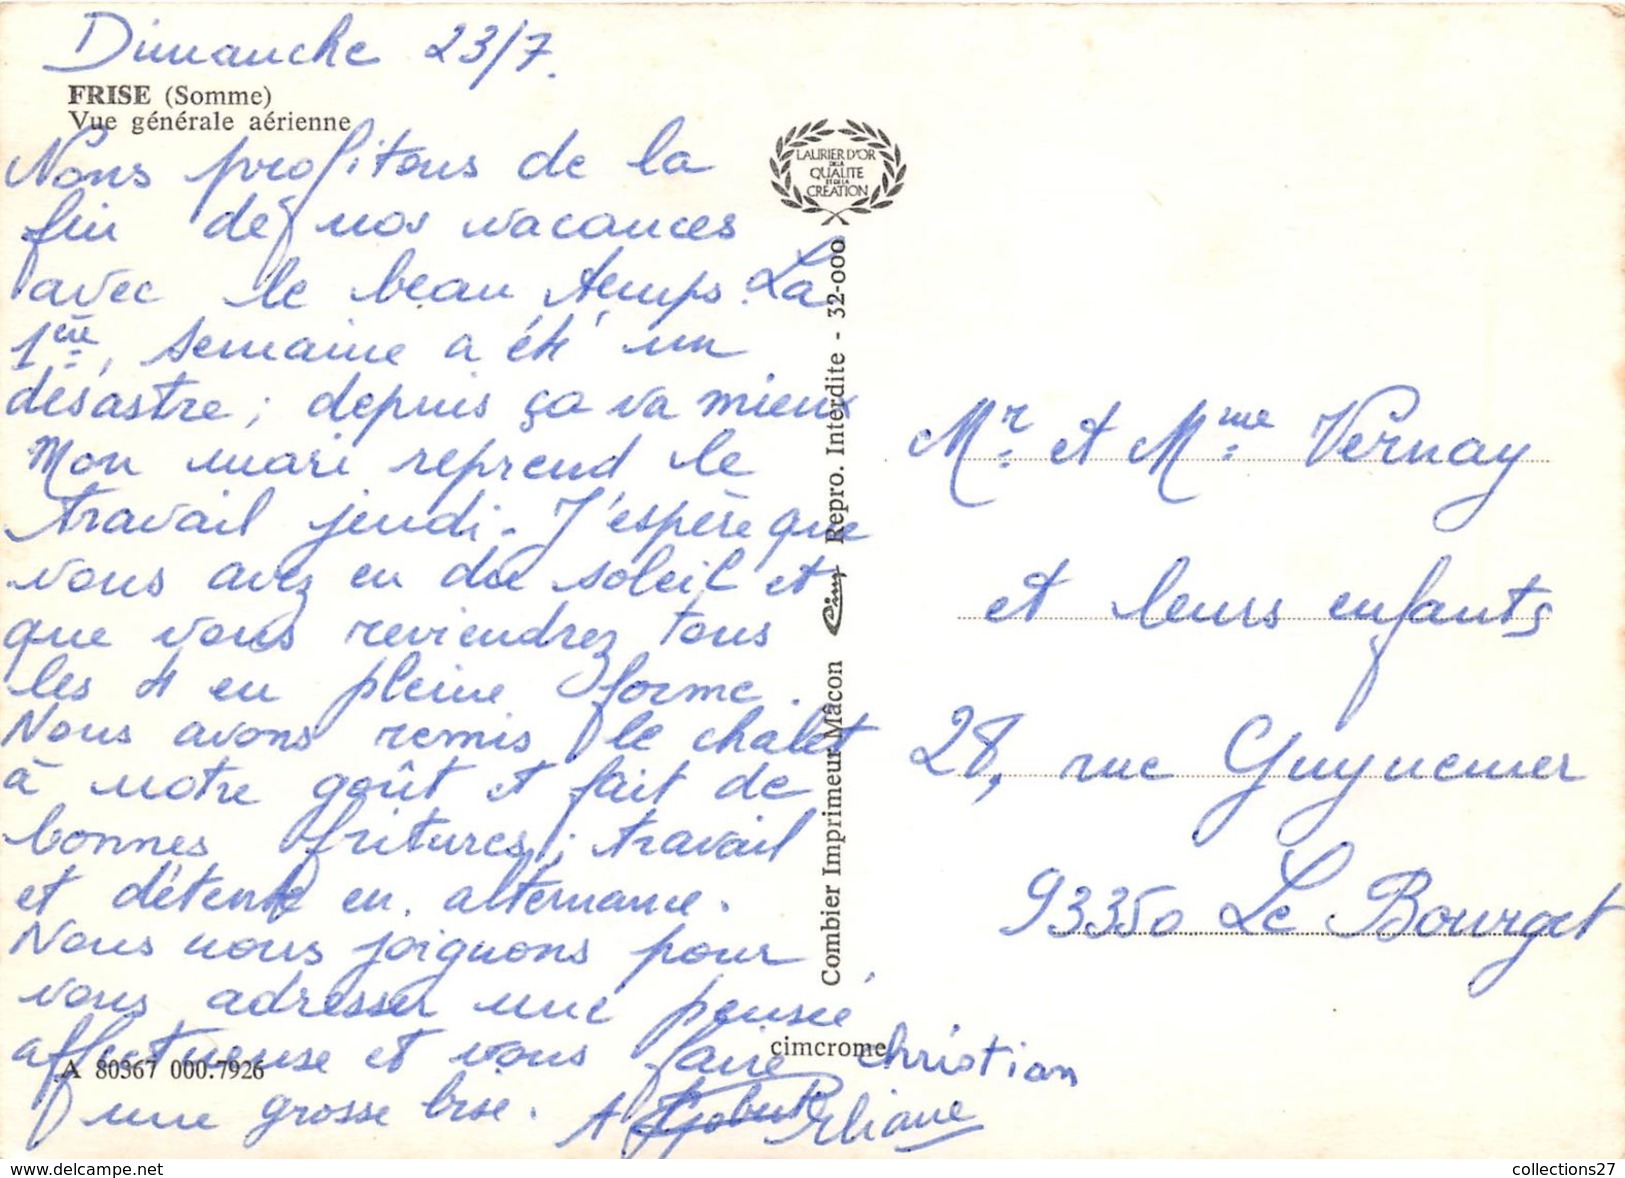 Dimanche 23/7.
FRISE (Somme)
Vue générale aérienne
Nous profitons de la
fin de nos vacances
avec le beau temps. La
1ère semaine a été un
désastre ; depuis ça va mieux
Mon mari reprend le
travail jeudi. J'espère que
vous avez eu du soleil et
que vous reviendrez tous
les 4 en pleine forme.
Nous avons remis le chalet
à notre goût et fait de
bonnes fritures ; travail
et détente en alternance.
Nous nous joignons pour
vous adresser une pensée
affectueuse et vous faire
une grosse bise.
christian
Eliane
A 80367 000.7926
cimcrome
LAURIER D'OR
DE LA
QUALITE
ET DE LA
CRÉATION
Combier Imprimeur Mâcon Cim Repro. Interdite - 32-000
Mr et Mme Vernay
et leurs enfants
28, rue Guynemer
93350 Le Bourget
www.delcampe.net
collections27